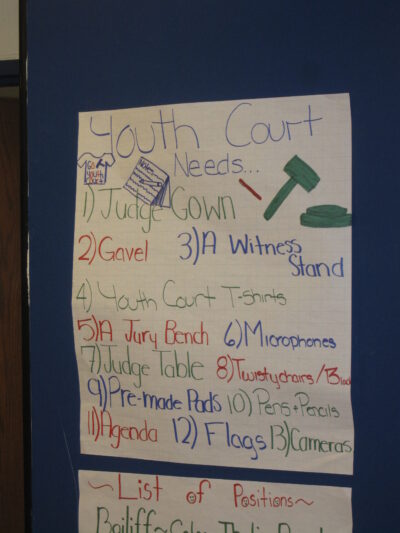 Youth Court
Needs...
Go
Youth
Court
Notes
1) Judge Gown
2) Gavel 3) A Witness
Stand
4) Youth Court T-shirts
5) A Jury Bench 6) Microphones
7) Judge Table 8) Twisty chairs/Black
9) Pre-made Pads 10) Pens + Pencils
11) Agenda 12) Flags 13) Cameras
~List of Positions~
Bailiff -